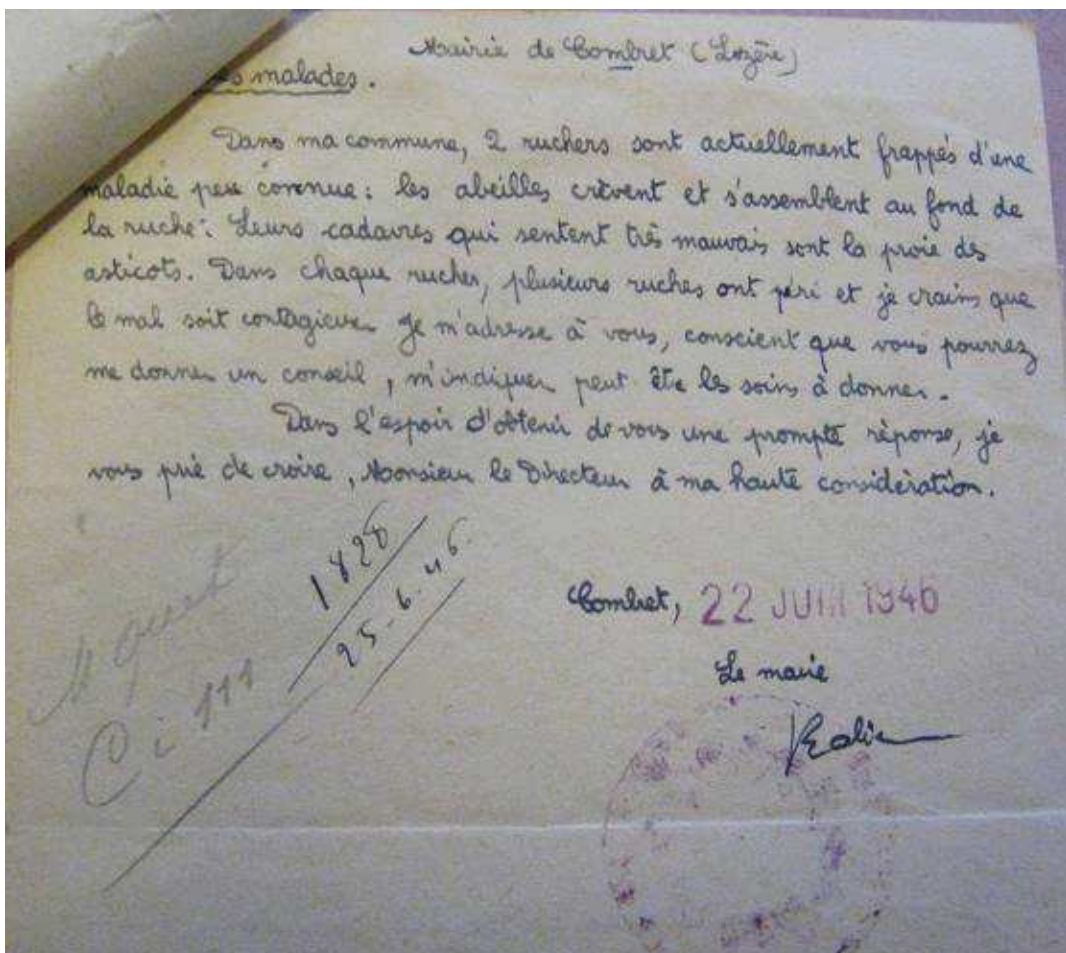 Mairie de Combret (Lozère)
malades.
Dans ma commune, 2 ruchers sont actuellement frappés d'une
maladie peu connue : les abeilles crèvent et s'assemblent au fond de
la ruche. Leurs cadavres qui sentent très mauvais sont la proie des
asticots. Dans chaque rucher, plusieurs ruches ont péri et je crains que
le mal soit contagieux. Je m'adresse à vous, conscient que vous pourrez
me donner un conseil, m'indiquer peut être les soins à donner.
Dans l'espoir d'obtenir de vous une prompte réponse, je
vous prie de croire, Monsieur le Directeur à ma haute considération.
1828
25-6-46.
Ci 111
Combret, 22 JUIN 1946
Le maire